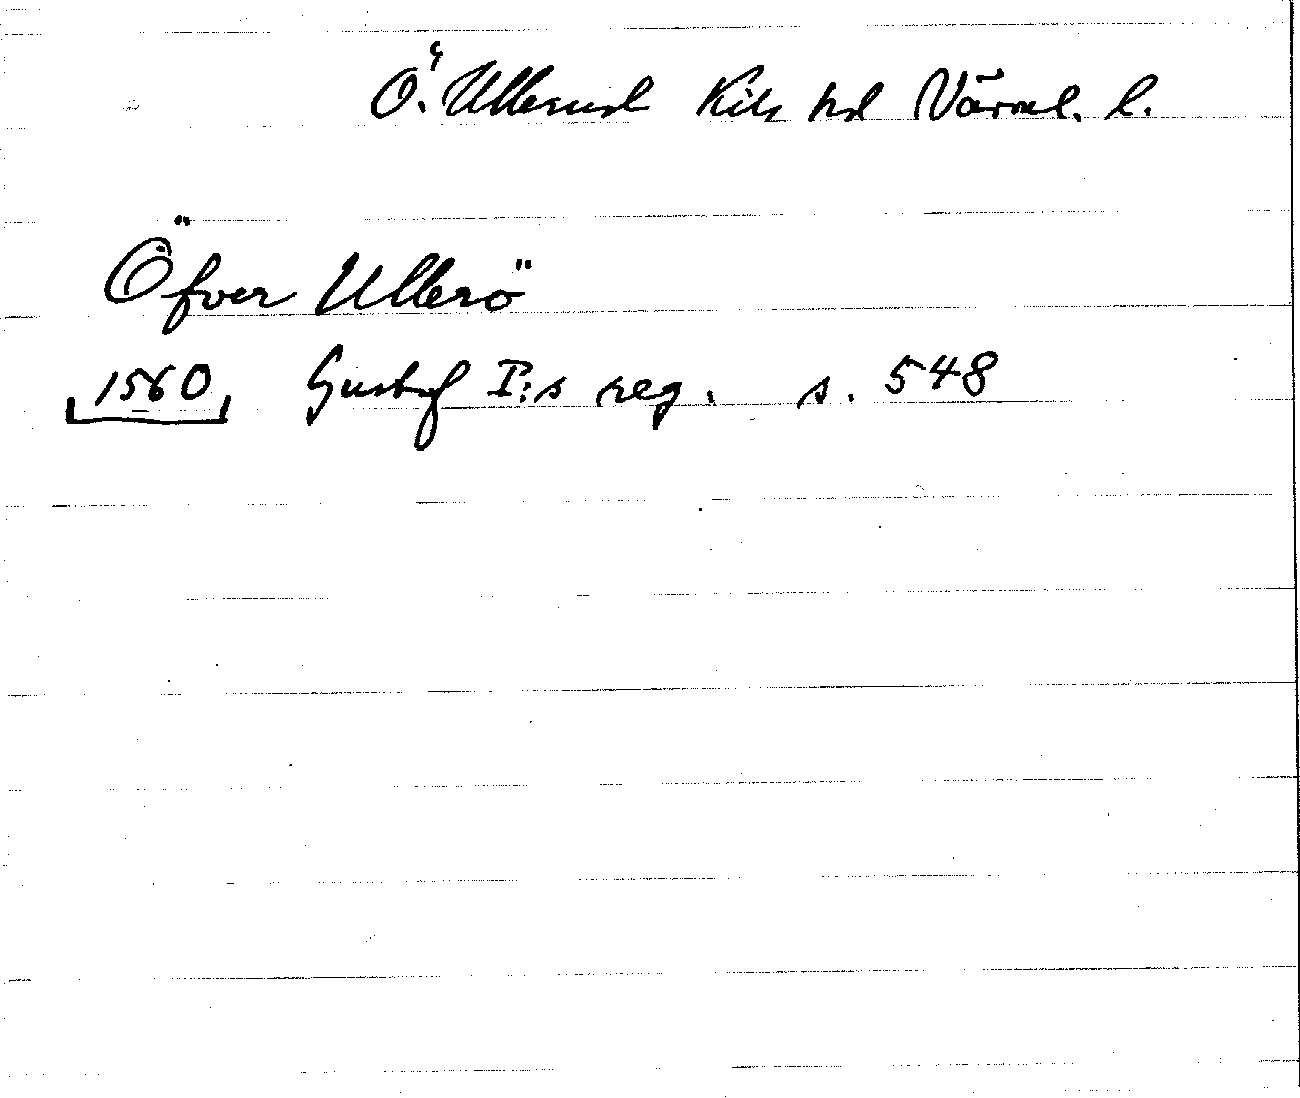 Ö. Ullerud Kils hd Värml. l.
Öfver Ullerö
1560 Gustaf I:s reg. s. 548